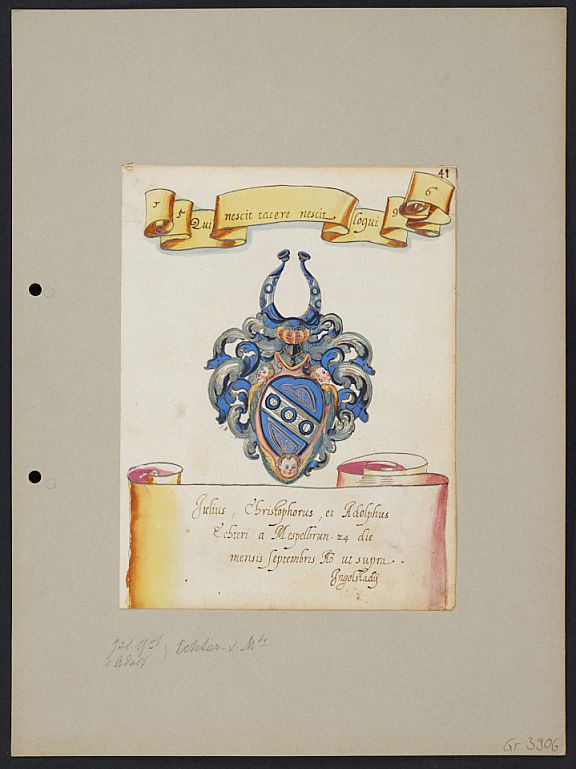 41
1 5 Qui nescit tacere nescit loqui 9 6
Julius, Christophorus, et Adolphus
Echteri a Mespelbrun. 24 die
mensis Septembris Aõ ut supra.
Ingolstadij
u Adolf
Echter v. Mbr
Gr 3906